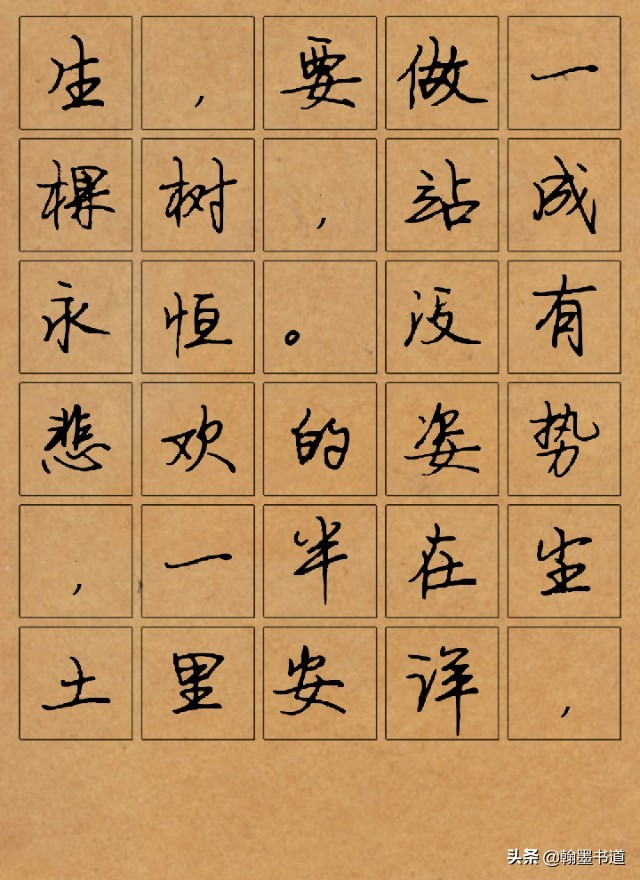 生，要做一
棵树，站成
永恒。没有
悲欢的姿势
，一半在尘
土里安详，
头条 @翰墨书道